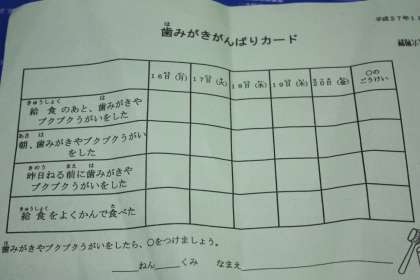 歯みがきがんばりカード
平成27年1
16日(月) 17日(火) 18日(水) 19日(木) 20日(金) ○の
ごうけい
給食のあと、歯みがきや
ブクブクうがいをした
朝、歯みがきやブクブクうがい
をした
昨日ねる前に歯みがきや
ブクブクうがいをした
給食をよくかんで食べた
歯みがきやブクブクうがいをしたら、○をつけましょう。
ねん くみ なまえ